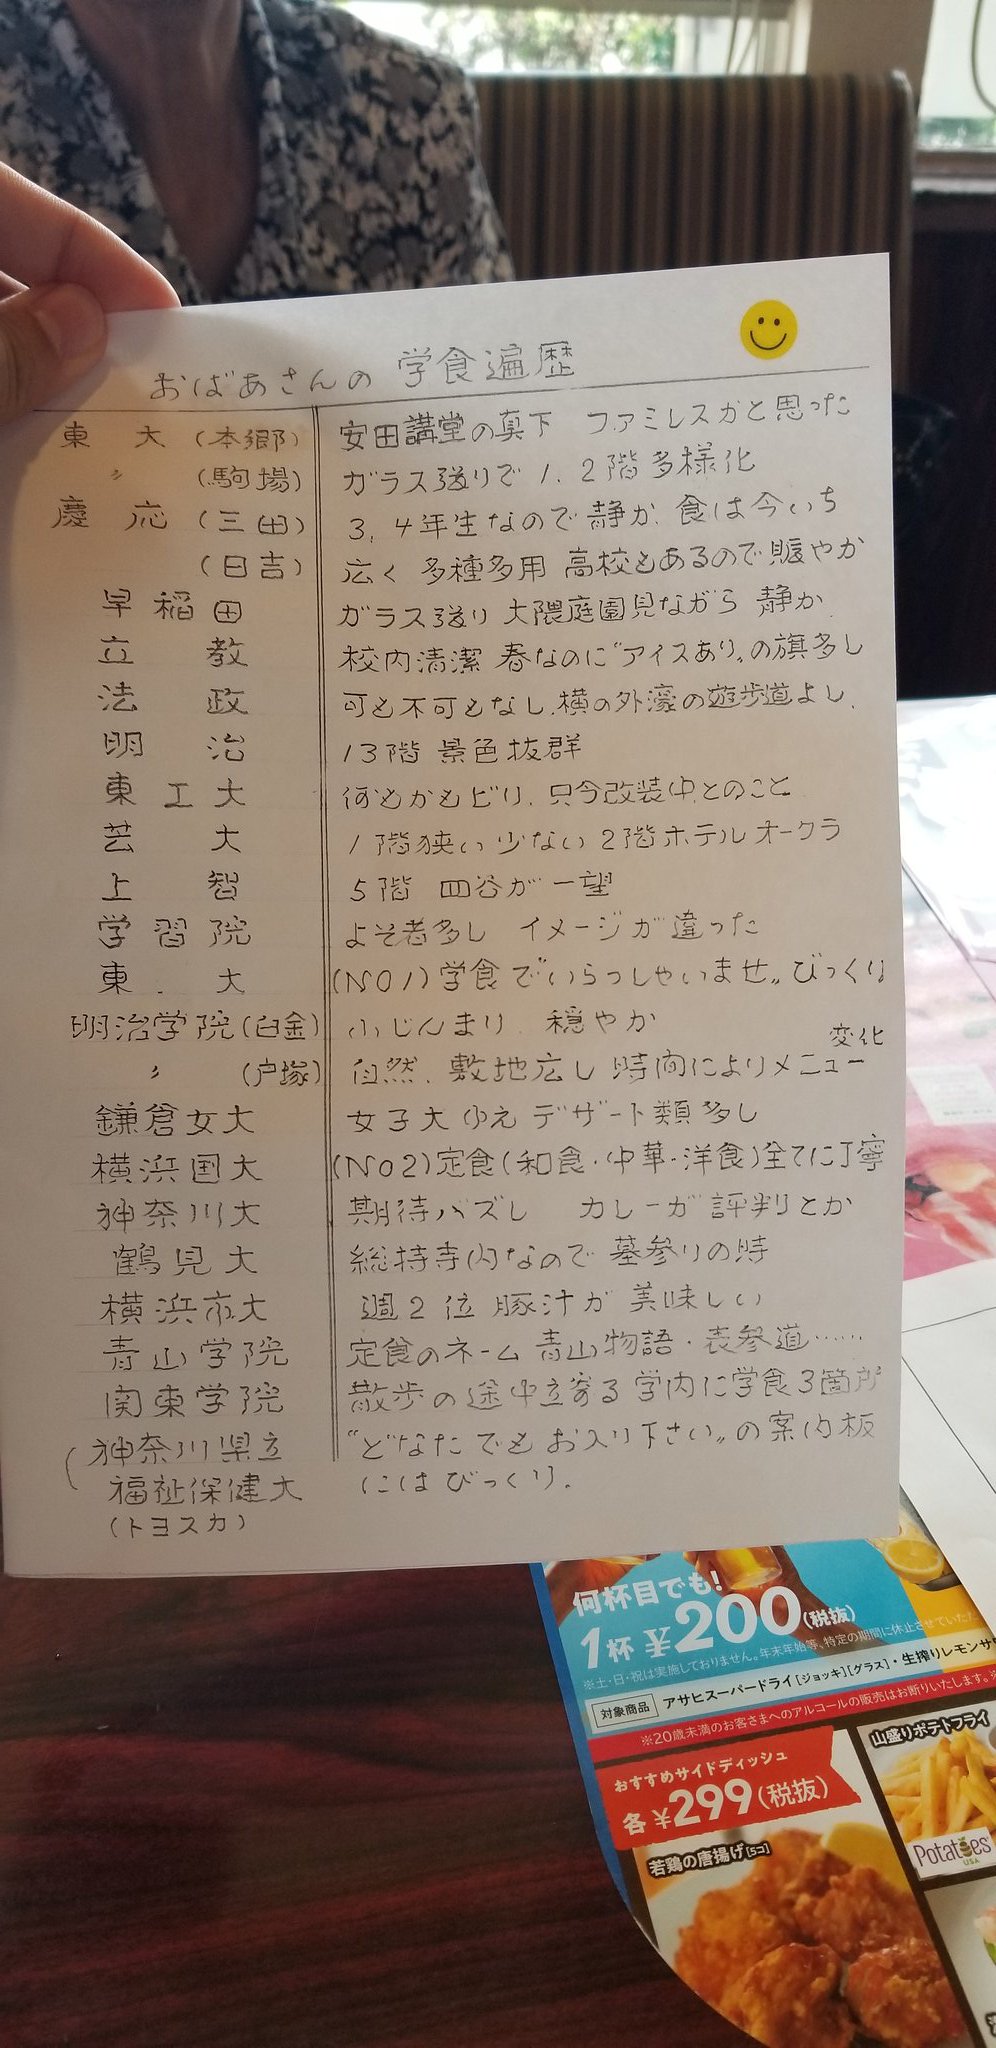 おばあさんの 学食遍歴
東大(本郷) 安田講堂の真下 ファミレスかと思った
〃(駒場) ガラス張りで 1、2階多様化
慶応(三田) 3、4年生なので静か、食は今いち
(日吉) 広く 多種多用 高校もあるので賑やか
早稲田 ガラス張り 大隈庭園見ながら 静か
立教 校内清潔 春なのに"アイスあり"の旗多し
法政 可も不可もなし、横の外濠の遊歩道よし、
明治 13階 景色抜群
東工大 何もかもビリ、只今改装中とのこと
芸大 1階狭い 少ない 2階ホテルオークラ
上智 5階 四谷が一望
学習院 よそ者多し イメージが違った
東.大 (NO1)学食で"いらっしゃいませ"びっくり
明治学院(白金) こじんまり 穏やか
〃(戸塚) 自然、敷地広し 時間によりメニュー変化
鎌倉女大 女子大ゆえ デザート類多し
横浜国大 (NO2)定食(和食・中華・洋食)全てに丁寧
神奈川大 期待ハズレ カレーが評判とか
鶴見大 総持寺内なので 墓参りの時
横浜市大 週2位 豚汁が 美味しい
青山学院 定食のネーム 青山物語・表参道……
関東学院 散歩の途中立寄る 学内に学食3箇所
神奈川県立 "どなたでもお入り下さい"の案内板
福祉保健大 にはびっくり.
(トヨスカ)
何杯目でも!
1杯¥200(税抜)
※土・日・祝は実施しておりません。年末年始等、特定の期間に休止させていただ
対象商品 アサヒスーパードライ[ジョッキ][グラス]・生搾りレモンサワ
※20歳未満のお客さまへのアルコールの販売はお断りいたします。
おすすめサイドディッシュ
各¥299(税抜)
山盛りポテトフライ
Potatoes
USA
若鶏の唐揚げ[5コ]